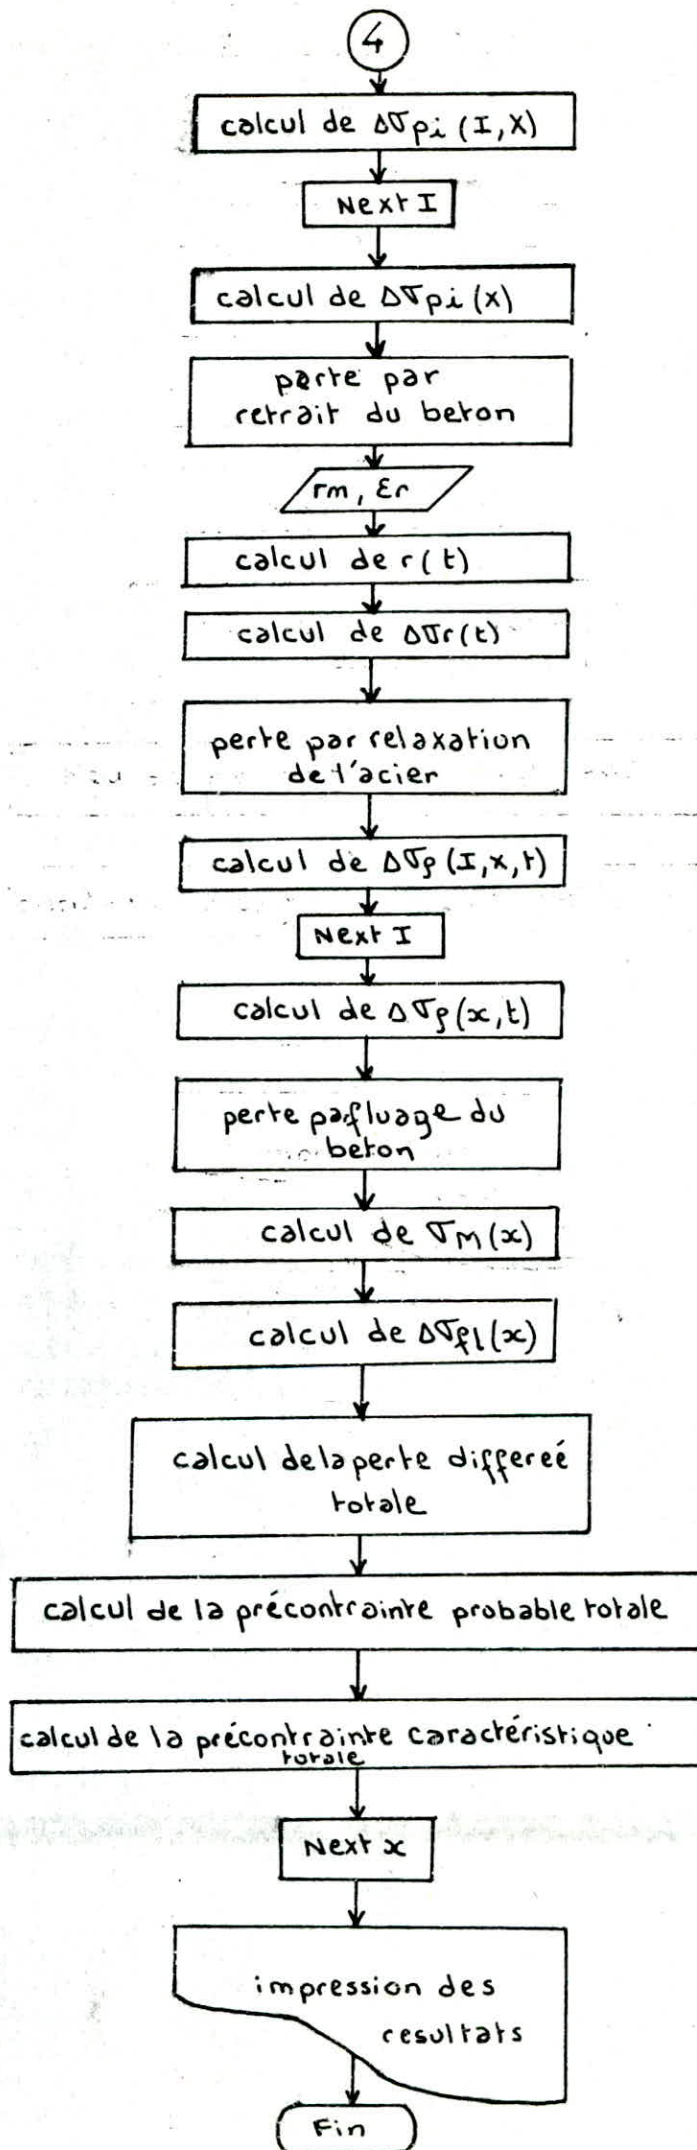 4
calcul de Δσpi (I,X)
Next I
calcul de Δσpi (x)
perte par
retrait du beton
rm, Ɛr
calcul de r(t)
calcul de Δσr(t)
perte par relaxation
de l'acier
calcul de Δσρ (I,x,t)
Next I
calcul de Δσρ(x,t)
perte parfluage du
beton
calcul de σM(x)
calcul de Δσfl(x)
calcul de la perte differeé
totale
calcul de la précontrainte probable totale
calcul de la précontrainte caractéristique
totale
Next x
impression des
resultats
Fin